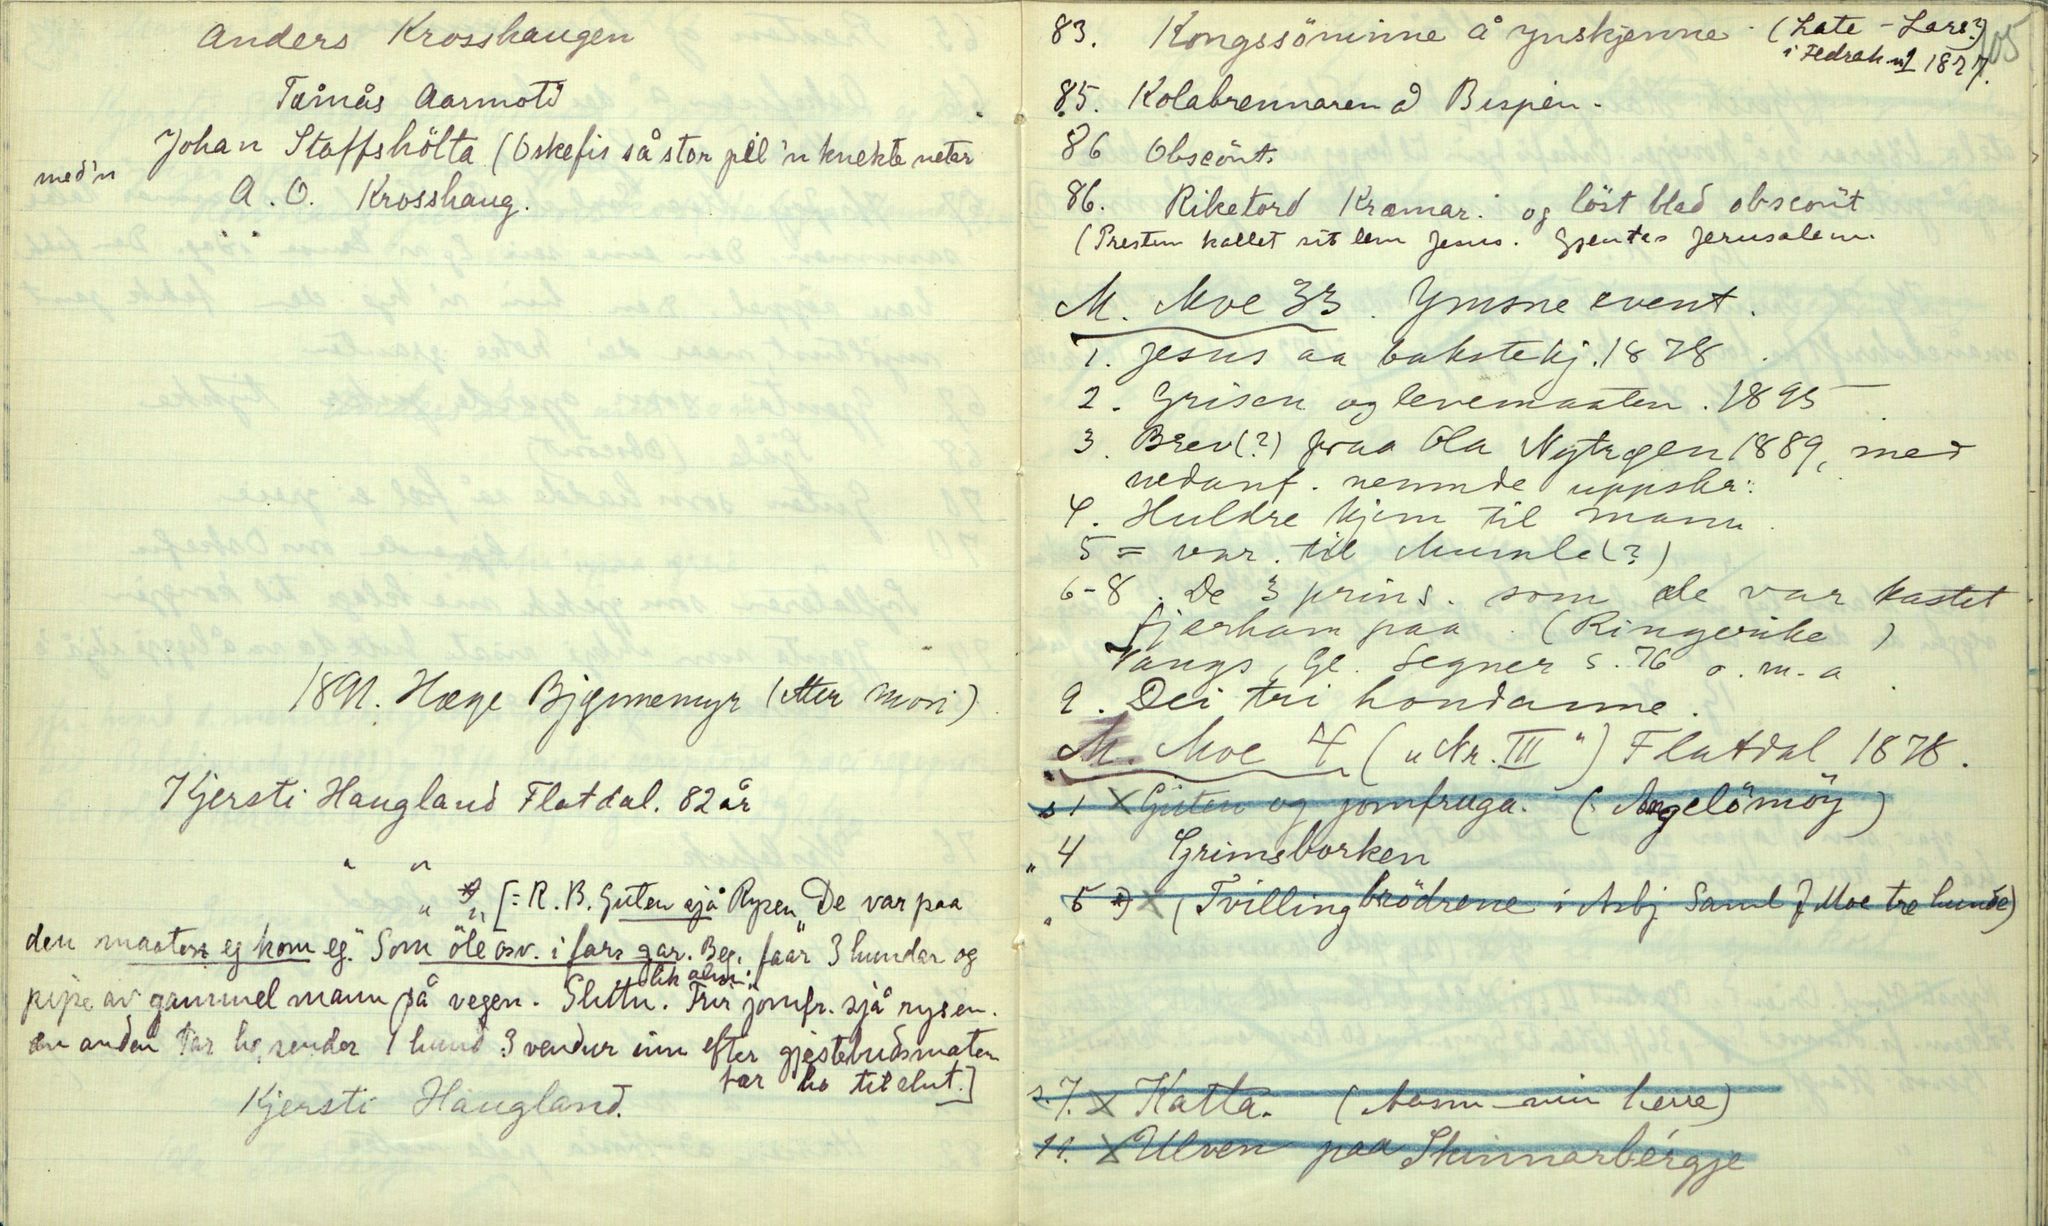 Anders Krosshaugen
Tarmås Aarmoti
Johan Staffshölta (Oskefis så stor pil 'n knekte neter
med'n
A. O. Krosshaug.
1891. Hæge Bjgnnemyr (etter mori)
Kjersti Haugland Flatdal. 82 år
" "
" " [= R. B. Guten sjå Rysen „De var paa
den maaten eg kom eg." Som öle osv. i fars gar. Beg. faar 3 hundar og
pipe av gammel mann på vegen. Sluttn. Frir jomfr. sjå rysen.
en anden tar ho, sender 1 hund 3 vendur inn efter gjestebudsmaten
tar ho til slut.]
Kjersti Haugland.
105
83. Kongssöninne å ynskjenne (Late - Lars?)
i Fedrah. 1877.
85. Kolabrennaren å Bispen.
86 Obscönt.
86. Riketord Kramar. og löst blad obscönt
(Presten kallet sit lem Jesus. Gjentas Jerusalem.
M. Moe 33. Ymsne event.
1. Jesus aa bakstekj. 1878.
2. Grisen og levemaaten. 1895
3. Brev(?) fraa Ola Nytrøen 1889, med
nedanf. nemnde uppskr.:
4. Huldre kjem til mann.
5 = var. til Mumle(?)
6-8. De 3 prins. som de var kastet
fjærham paa. (Ringerike)
Vangs, Gl. Segner s. 76 o.m.a.
9. Dei tri hondanne.
M. Moe 4 („Nr. III") Flatdal 1878.
s 1 x Guten og jomfruga. (Angelömöy)
" 4 Grimsborken
" 5 x (Tvillingbrödrene i Asbj Saml J Moe tre hunde)
s 7. x Katta. (Aasm - min herre)
11. x Ulven paa Skinnarbérgje